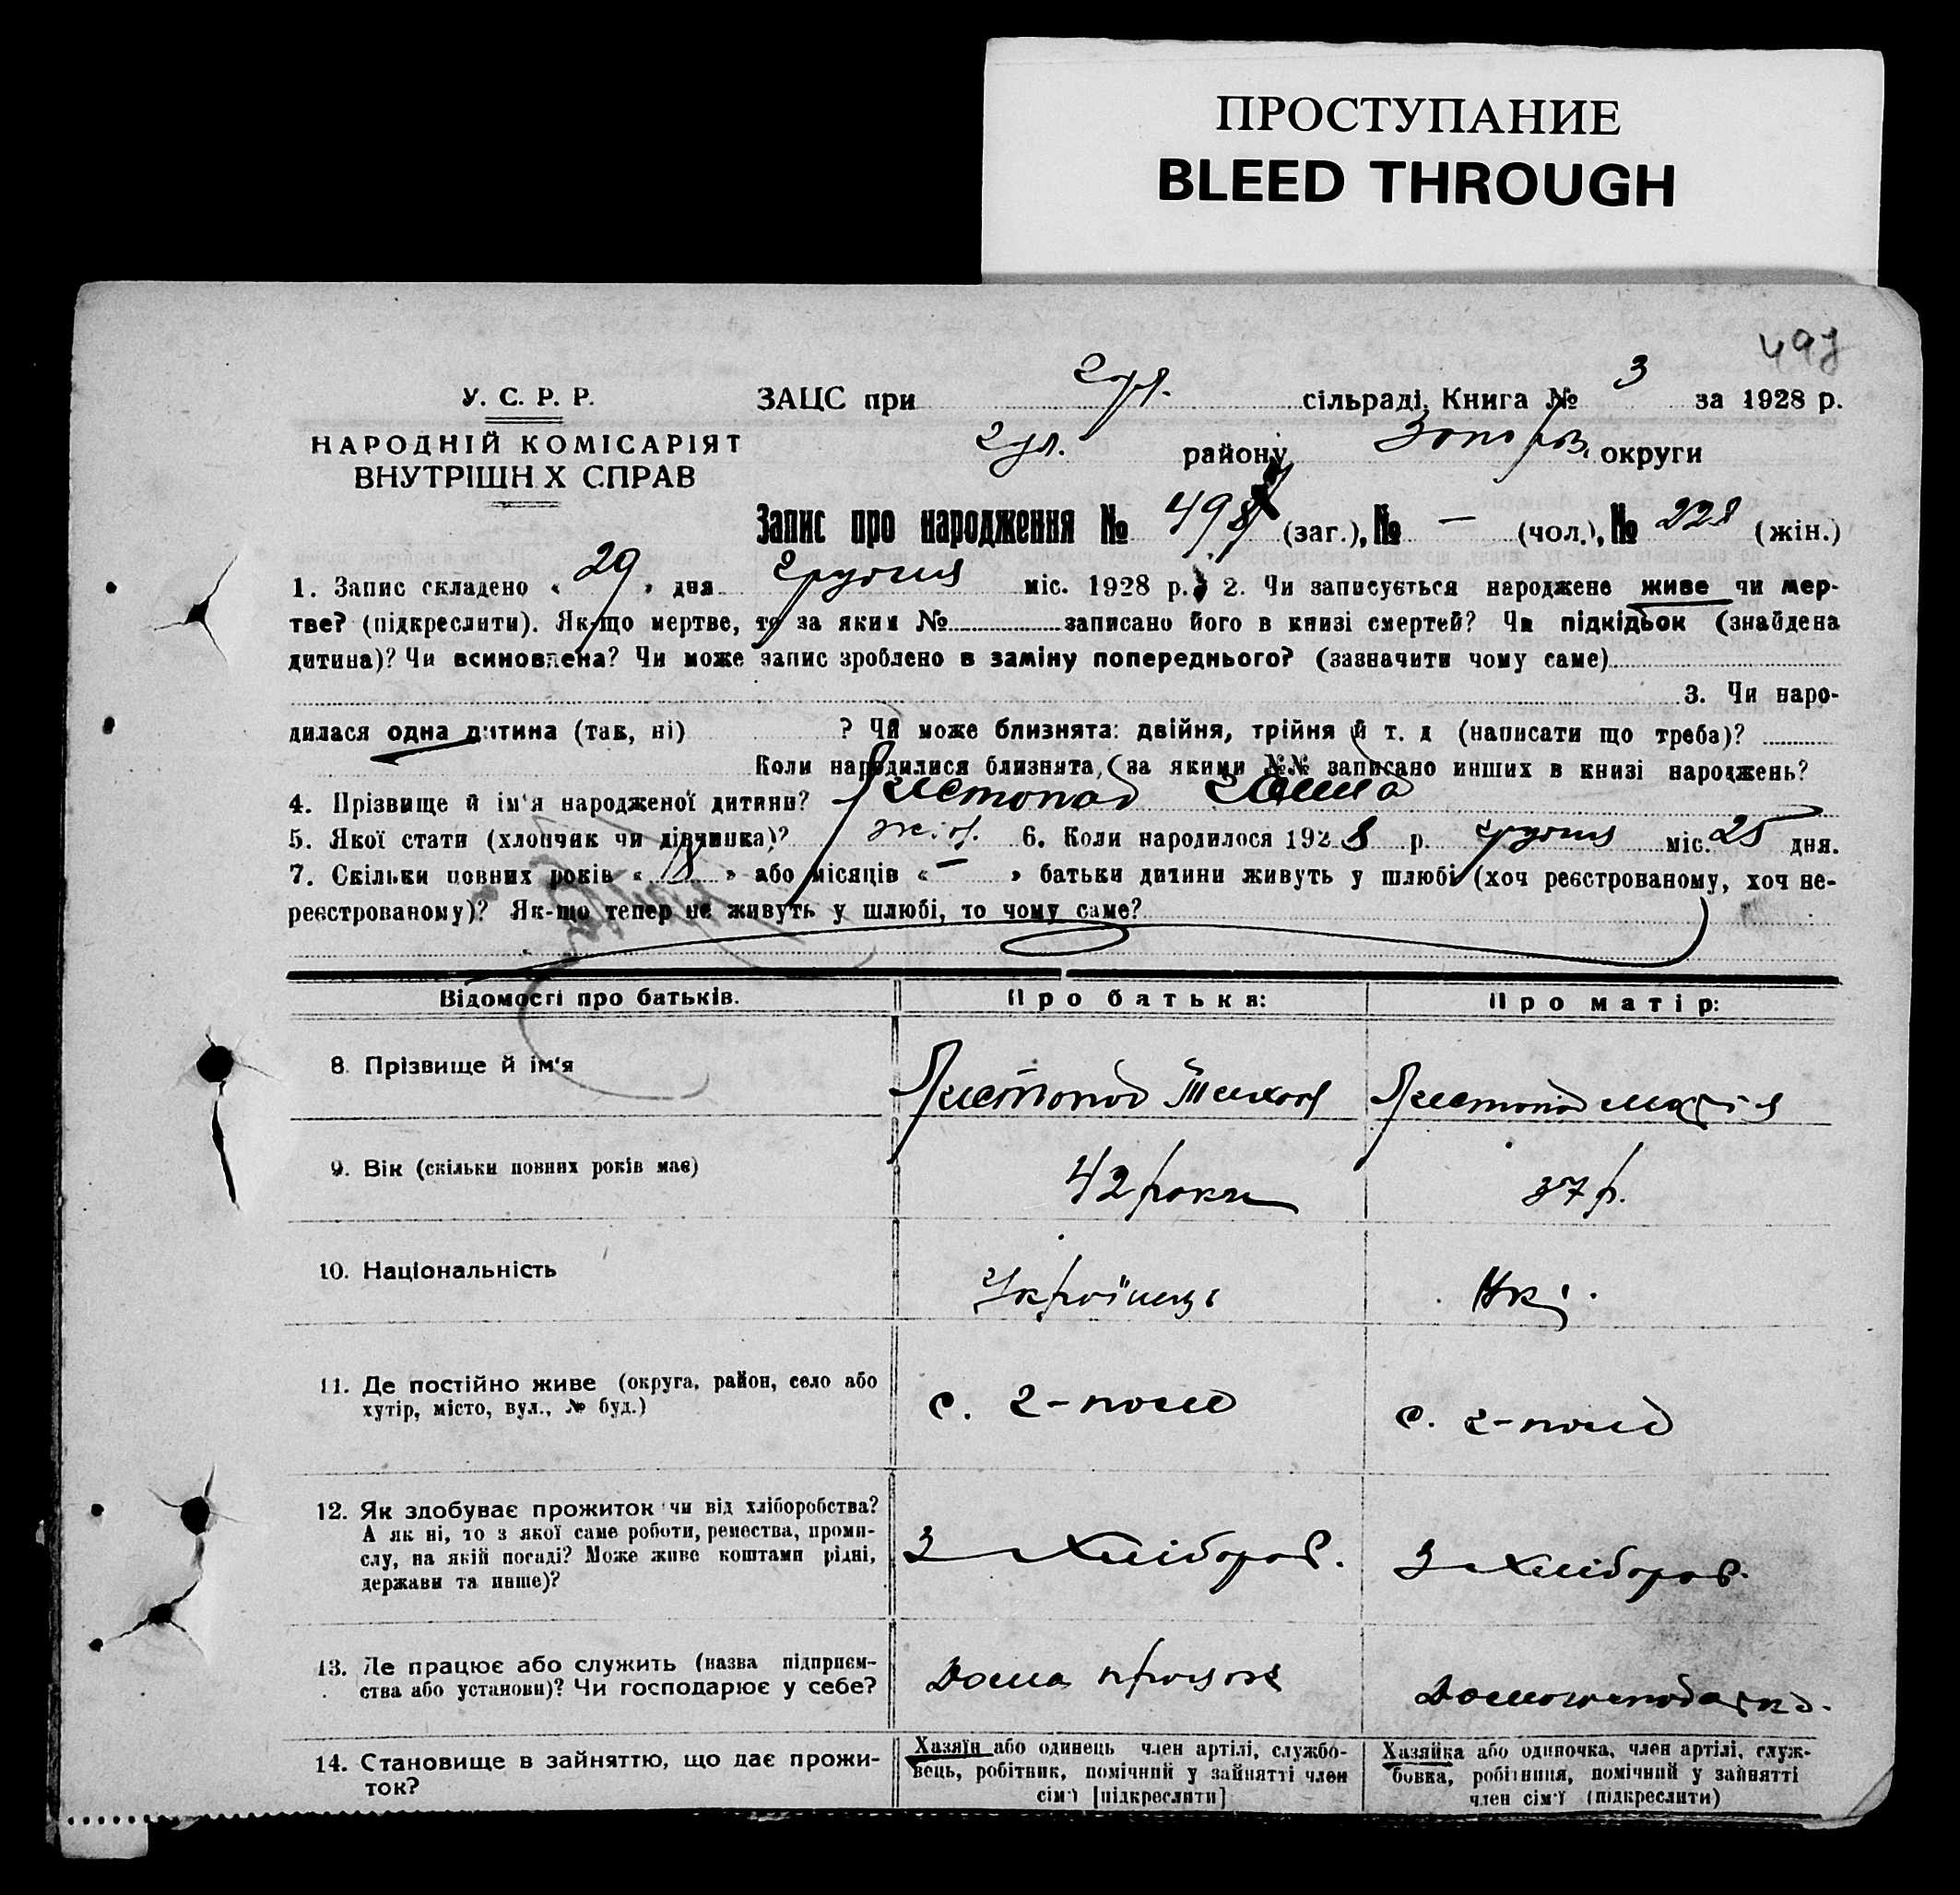 ПРОСТУПАНИЕ
BLEED THROUGH
497
У. С. Р. Р.
НАРОДНІЙ КОМІСАРІЯТ
ВНУТРІШН Х СПРАВ
ЗАЦС при Гул. сільраді. Книга № 3 за 1928 р.
Гул. району Запоріз. округи
Запис про народження № 497 (заг.), № — (чол.), № 228 (жін.)
1. Запис складено « 29 » дня грудня міс. 1928 р. 2. Чи записується народжене живе чи мер-
тве? (підкреслити). Як-що мертве, то за яким № записано його в книзі смертей? Чи підкідьок (знайдена
дитина)? Чи всиновлена? Чи може запис зроблено в заміну попереднього? (зазначити чому саме)
3. Чи наро-
дилася одна дитина (так, ні) ? Чи може близнята: двійня, трійня й т. д (написати що треба)?
Коли народилися близнята, за якими №№ записано инших в книзі народжень?
4. Прізвище й ім'я народженої дитини? Листопад Ганна
5. Якої стати (хлопчик чи дівчинка)? жін. 6. Коли народилося 1928 р. грудня міс. 25 дня.
7. Скільки повних років « 18 » або місяців « — » батьки дитини живуть у шлюбі (хоч реєстрованому, хоч не-
реєстрованому)? Як-що тепер не живуть у шлюбі, то чому саме?
Відомості про батьків. Про батька: Про матір:
8. Прізвище й ім'я Листопад Тихон Листопад Марія
9. Вік (скільки повних років має) 42 роки 37 р.
10. Національність Українці Укр.
11. Де постійно живе (округа, район, село або
хутір, місто, вул., № буд.) с. Г-поле с. Г-поле
12. Як здобуває прожиток чи від хліборобства?
А як ні, то з якої саме роботи, ремества, проми-
слу, на якій посаді? Може живе коштами рідні,
держави та инше)? З хлібороб. З хлібороб.
13. Де працює або служить (назва підприєм-
ства або установи)? Чи господарює у себе? Дома працює Домогосподарка.
14. Становище в зайняттю, що дає прожи-
ток?
Хазяїн або одинець член артілі, службо-
вець, робітник, помічний у зайнятті член
сім'ї [підкреслити]
Хазяйка або одиночка, член артілі, служ-
бовка, робітниця, помічний у зайнятті
член сім'ї (підкреслити)